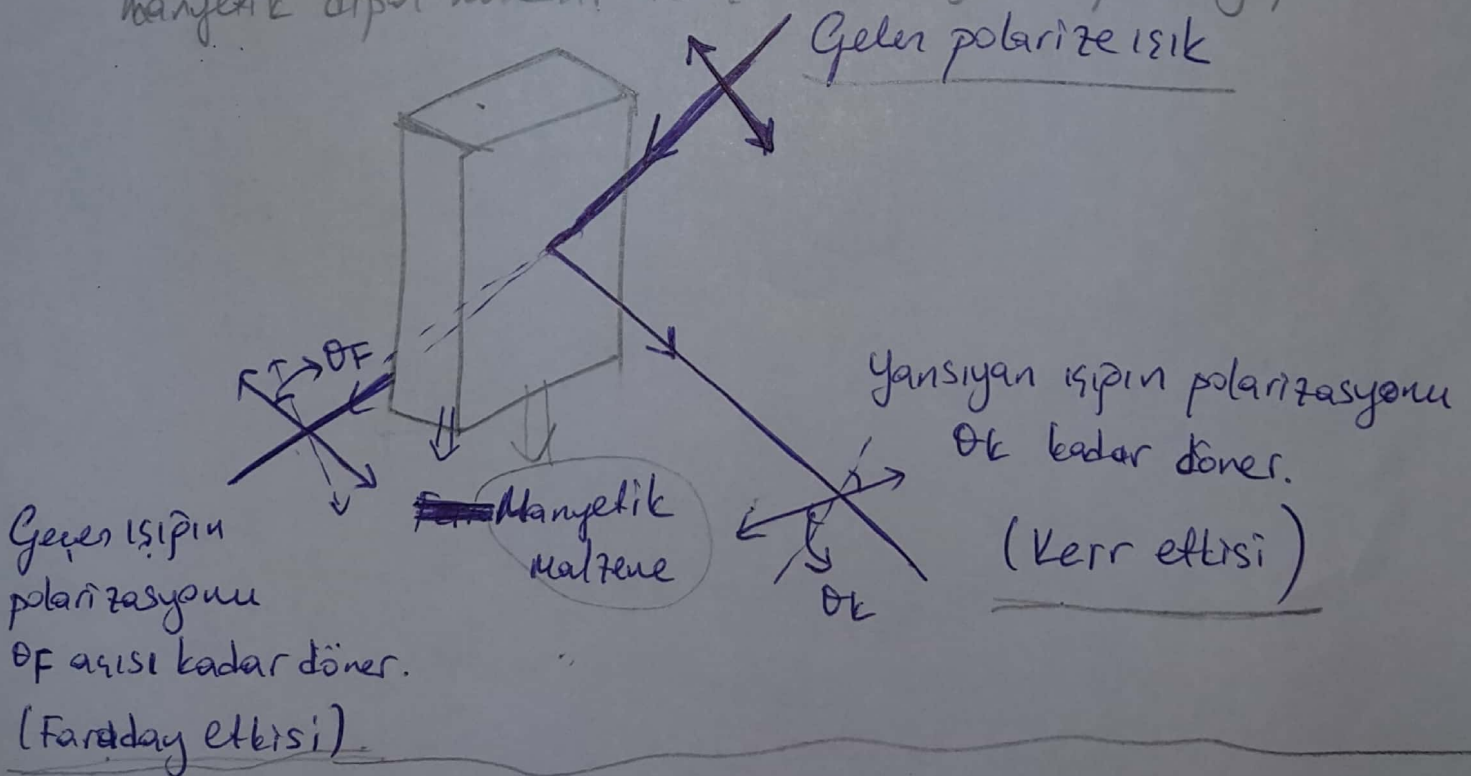 manyetik dipol
Gelen polarize ışık
θF
Yansıyan ışığın polarizasyonu
θk kadar döner.
(Kerr etkisi)
θk
Manyetik
malzeme
Geçen ışığın
polarizasyonu
θF açısı kadar döner.
(Faraday etkisi).